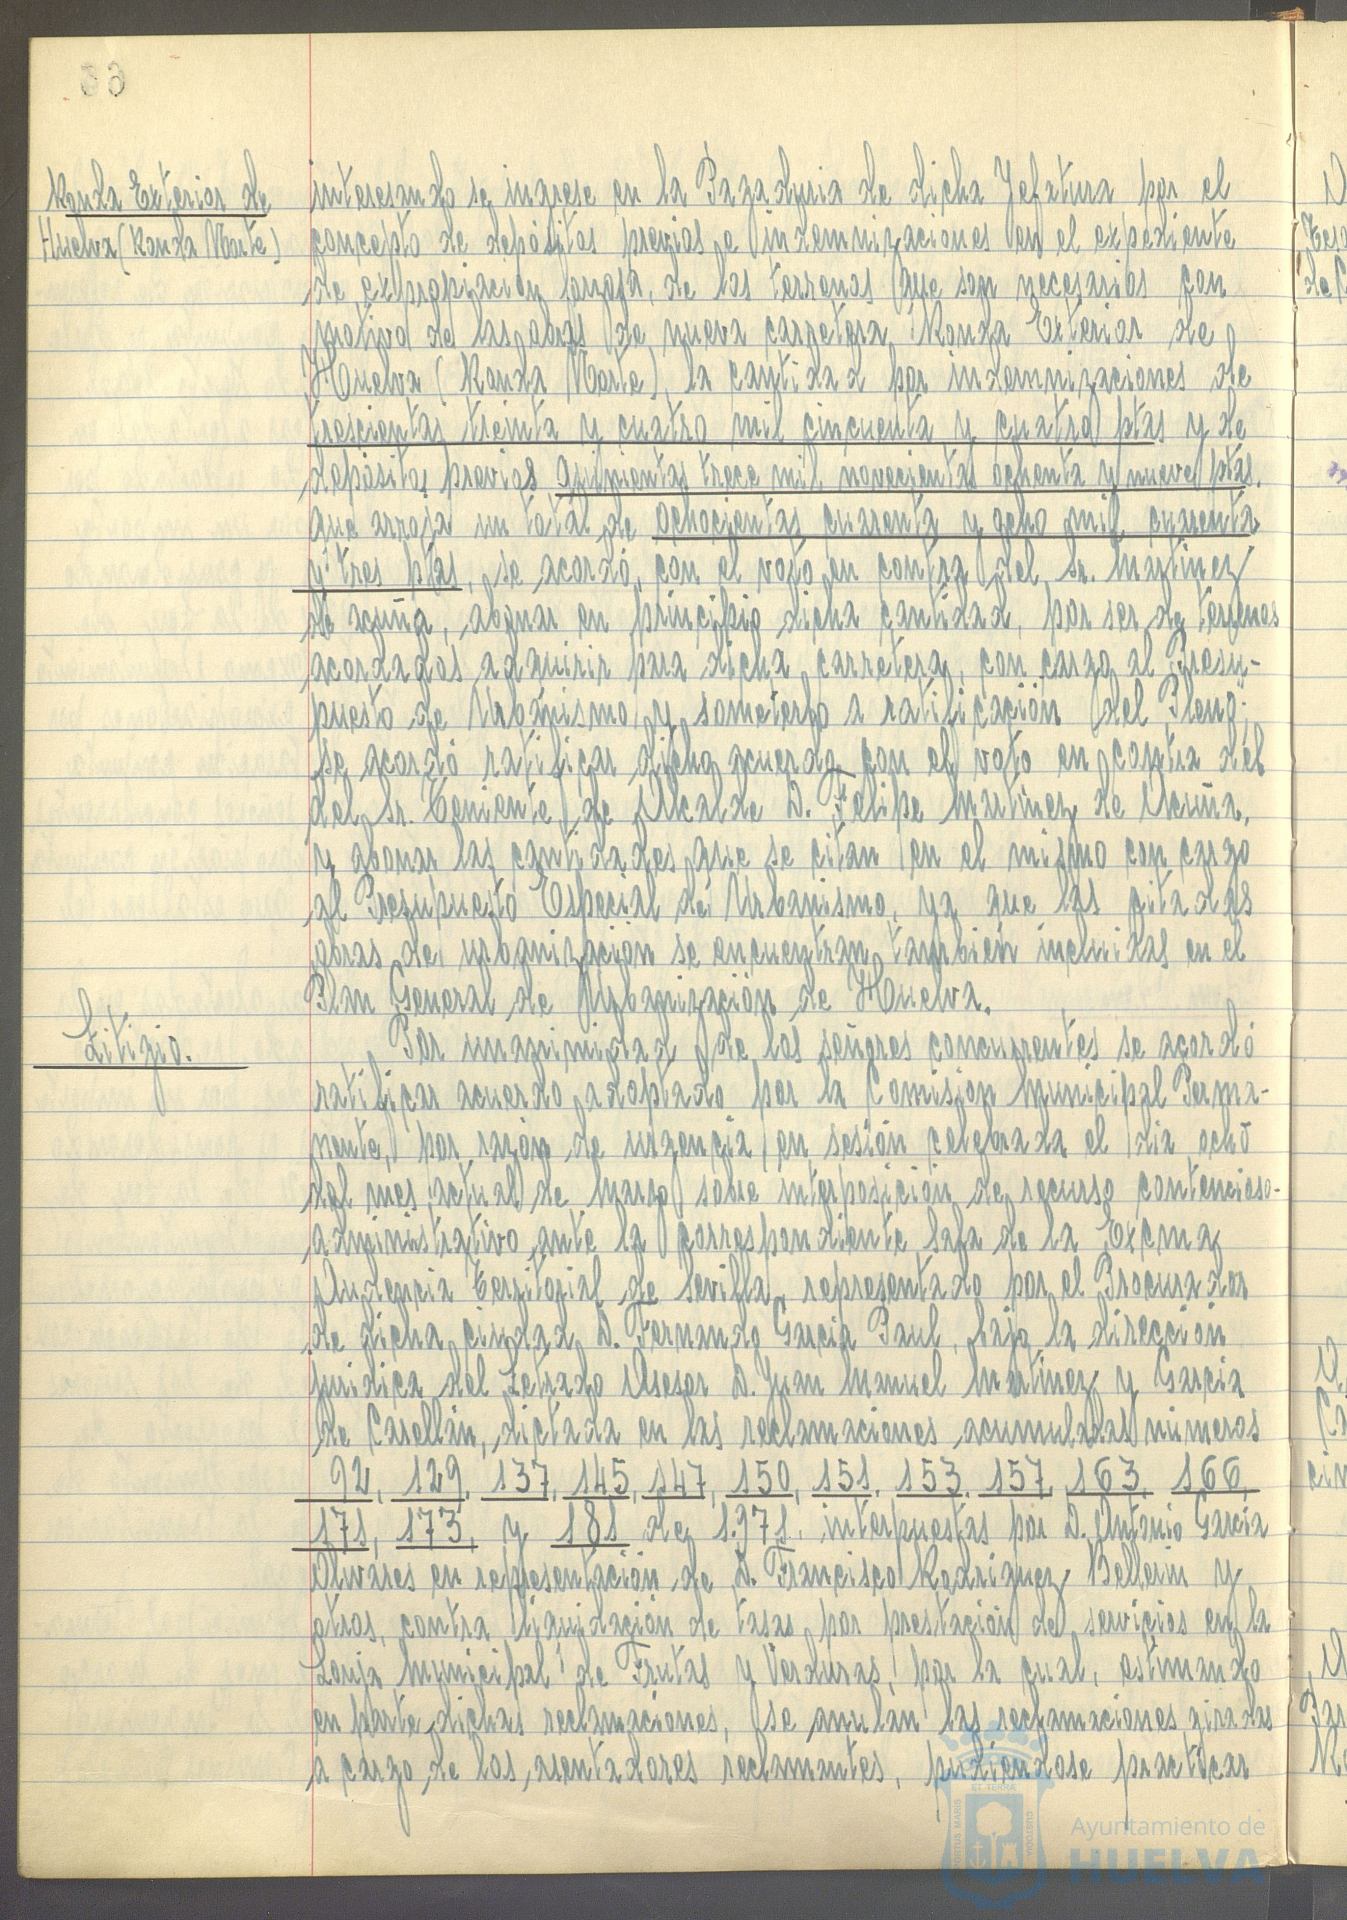 63
Ronda Exterior de
Huelva (Ronda Norte)
interesando se ingrese en la Pagaduria de dicha Jefatura por el
concepto de depósitos previos e indemnizaciones en el expediente
de expropiación forzosa, de los terrenos que son necesarios con
motivo de las obras de nueva carretera "Ronda Exterior de
Huelva (Ronda Norte), la cantidad por indemnizaciones de
trescientas treinta y cuatro mil cincuenta y cuatro ptas y de
depósitos previos quinientas trece mil novecientas ochenta y nueve ptas.
que arroja un total de ochocientas cuarenta y ocho mil cuarenta
y tres ptas, se acordó, con el voto en contra del Sr. Martinez
de Acuña, abonar en principio dicha cantidad, por ser de terrenos
acordados adquirir para dicha carretera, con cargo al Presu-
puesto de Urbanismo y someterlo a ratificación del Pleno";
se acordó ratificar dicho acuerdo con el voto en contra del
del Sr. Teniente de Alcalde D. Felipe Martinez de Acuña,
y abonar las cantidades que se citan en el mismo con cargo
al Presupuesto Especial de Urbanismo, ya que las citadas
obras de urbanización se encuentran también incluidas en el
Plan General de Urbanización de Huelva.
Litigio.
Por unanimidad de los señores concurrentes se acordó
ratificar acuerdo adoptado por la Comisión Municipal Perma-
nente, por razón de urgencia, en sesión celebrada el dia ocho
del mes actual de Marzo sobre interposición de recurso contencioso-
administrativo ante la correspondiente Sala de la Excma
Audencia Territorial de Sevilla, representado por el Procurador
de dicha ciudad D. Fernando Garcia Paul, bajo la dirección
juridica del Letrado Asesor D. Juan Manuel Martinez y Garcia
de Casellán, dictada en las reclamaciones acumuladas números
92, 129, 137, 145, 147, 150, 151, 153, 157, 163, 166,
171, 173, y 181 de 1.971, interpuestas por D. Antonio Garcia
Olivares en representación de D. Francisco Rodriguez Bellerin y
otros, contra liquidación de tasas por prestación de servicios en la
Lonja Municipal de Frutas y Verduras, por la cual, estimando
en parte dichas reclamaciones, se anulan las reclamaciones giradas
a cargo de los asentadores reclamantes, pudiendose practicar
Ayuntamiento de
HUELVA